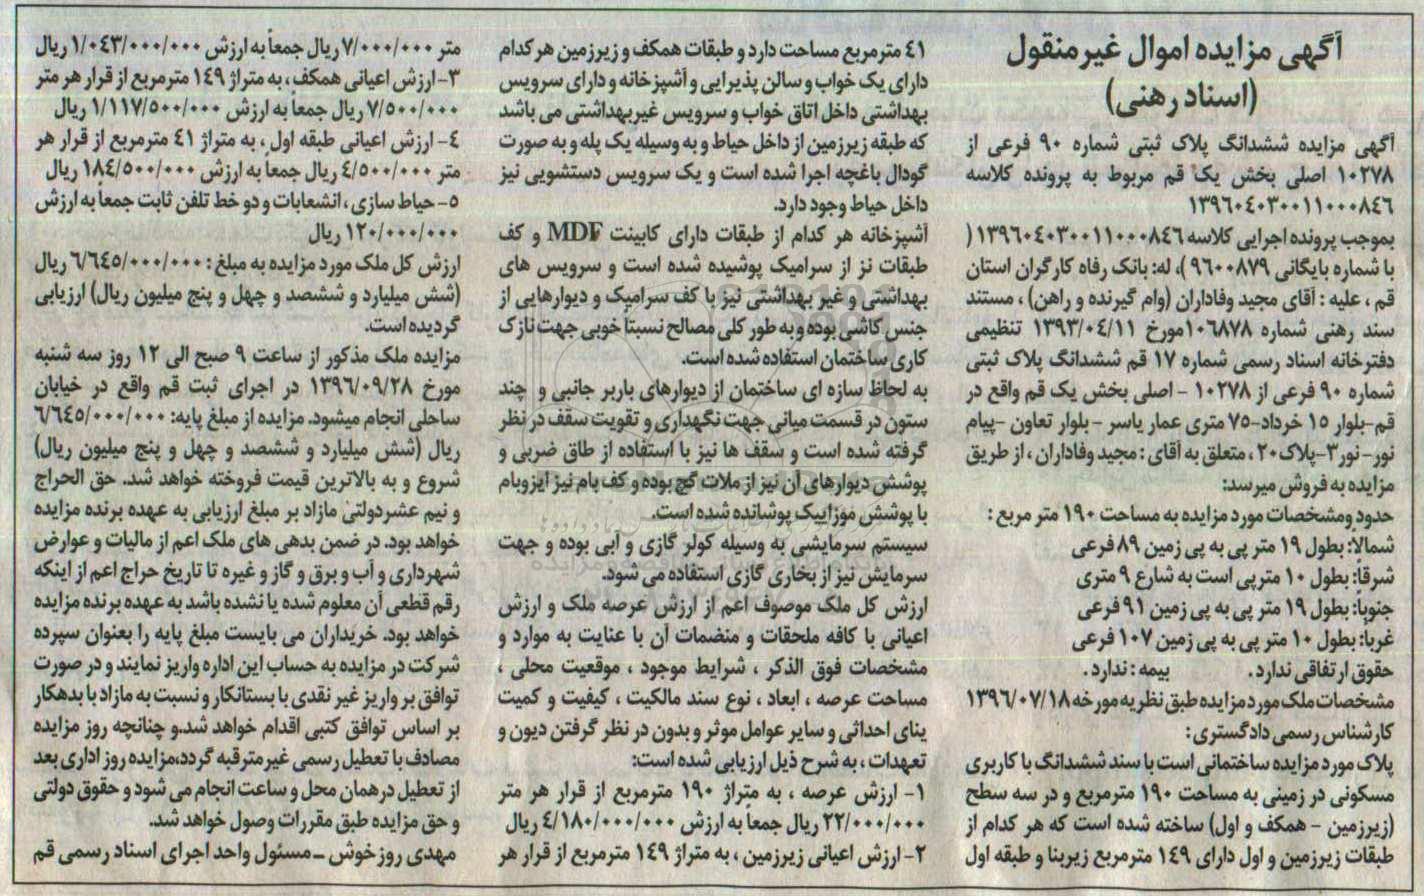 آگهی مزایده اموال غیرمنقول
(اسناد رهنی)
آگهی مزایده ششدانگ پلاک ثبتی شماره ۹۰ فرعی از
۱۰۲۷۸ اصلی بخش یک قم مربوط به پرونده کلاسه
۱۳۹۶۰۴۰۳۰۰۱۱۰۰۰۸۴۶
بموجب پرونده اجرایی کلاسه ۱۳۹۶۰۴۰۳۰۰۱۱۰۰۰۸۴۶ (
با شماره بایگانی ۹۶۰۰۸۷۹ )، له: بانک رفاه کارگران استان
قم ، علیه : آقای مجید وفاداران (وام گیرنده و راهن) ، مستند
سند رهنی شماره ۱۰۶۸۷۸مورخ ۱۳۹۳/۰۴/۱۱ تنظیمی
دفترخانه اسناد رسمی شماره ۱۷ قم ششدانگ پلاک ثبتی
شماره ۹۰ فرعی از ۱۰۲۷۸ - اصلی بخش یک قم واقع در
قم-بلوار ۱۵ خرداد-۷۵ متری عمار یاسر - بلوار تعاون -پیام
نور-نور۳-پلاک۲۰ ، متعلق به آقای : مجید وفاداران ، از طریق
مزایده به فروش میرسد:
حدود ومشخصات مورد مزایده به مساحت ۱۹۰ متر مربع :
شمالاً: بطول ۱۹ متر پی به پی زمین ۸۹ فرعی
شرقاً: بطول ۱۰ مترپی است به شارع ۹ متری
جنوباً: بطول ۱۹ متر پی به پی زمین ۹۱ فرعی
غرباً: بطول ۱۰ متر پی به پی زمین ۱۰۷ فرعی
حقوق ارتفاقی ندارد . بیمه : ندارد .
مشخصات ملک مورد مزایده طبق نظریه مورخه ۱۳۹۶/۰۷/۱۸
کارشناس رسمی دادگستری :
پلاک مورد مزایده ساختمانی است با سند ششدانگ با کاربری
مسکونی در زمینی به مساحت ۱۹۰ مترمربع و در سه سطح
(زیرزمین - همکف و اول) ساخته شده است که هر کدام از
طبقات زیرزمین و اول دارای ۱۴۹ مترمربع زیربنا و طبقه اول
۴۱ مترمربع مساحت دارد و طبقات همکف و زیرزمین هر کدام
دارای یک خواب و سالن پذیرایی و آشپزخانه و دارای سرویس
بهداشتی داخل اتاق خواب و سرویس غیربهداشتی می باشد
که طبقه زیرزمین از داخل حیاط و به وسیله یک پله و به صورت
گودال باغچه اجرا شده است و یک سرویس دستشویی نیز
داخل حیاط وجود دارد.
آشپزخانه هر کدام از طبقات دارای کابینت MDF و کف
طبقات نز از سرامیک پوشیده شده است و سرویس های
بهداشتی و غیر بهداشتی نیز با کف سرامیک و دیوارهایی از
جنس کاشی بوده و به طور کلی مصالح نسبتاً خوبی جهت نازک
کاری ساختمان استفاده شده است.
به لحاظ سازه ای ساختمان از دیوارهای باربر جانبی و چند
ستون در قسمت میانی جهت نگهداری و تقویت سقف در نظر
گرفته شده است و سقف ها نیز با استفاده از طاق ضربی و
پوشش دیوارهای آن نیز از ملات گچ بوده و کف بام نیز ایزوبام
با پوشش موزاییک پوشانده شده است.
سیستم سرمایشی به وسیله کولر گازی و آبی بوده و جهت
سرمایش نیز از بخاری گازی استفاده می شود.
ارزش کل ملک موصوف اعم از ارزش عرصه ملک و ارزش
اعیانی با کافه ملحقات و منضمات آن با عنایت به موارد و
مشخصات فوق الذکر ، شرایط موجود ، موقعیت محلی ،
مساحت عرصه ، ابعاد ، نوع سند مالکیت ، کیفیت و کمیت
ینای احداثی و سایر عوامل موثر و بدون در نظر گرفتن دیون و
تعهدات ، به شرح ذیل ارزیابی شده است:
۱- ارزش عرصه ، به متراژ ۱۹۰ مترمربع از قرار هر متر
۲۲/۰۰۰/۰۰۰ ریال جمعاً به ارزش ۴/۱۸۰/۰۰۰/۰۰۰ ریال
۲- ارزش اعیانی زیرزمین ، به متراژ ۱۴۹ مترمربع از قرار هر
متر ۷/۰۰۰/۰۰۰ ریال جمعاً به ارزش ۱/۰۴۳/۰۰۰/۰۰۰ ریال
۳- ارزش اعیانی همکف ، به متراژ ۱۴۹ مترمربع از قرار هر متر
۷/۵۰۰/۰۰۰ ریال جمعاً به ارزش ۱/۱۱۷/۵۰۰/۰۰۰ ریال
۴- ارزش اعیانی طبقه اول ، به متراژ ۴۱ مترمربع از قرار هر
متر ۴/۵۰۰/۰۰۰ ریال جمعاً به ارزش ۱۸۴/۵۰۰/۰۰۰ ریال
۵- حیاط سازی ، انشعابات و دو خط تلفن ثابت جمعاً به ارزش
۱۲۰/۰۰۰/۰۰۰ ریال
ارزش کل ملک مورد مزایده به مبلغ : ۶/۶۴۵/۰۰۰/۰۰۰ ریال
(شش میلیارد و ششصد و چهل و پنج میلیون ریال) ارزیابی
گردیده است.
مزایده ملک مذکور از ساعت ۹ صبح الی ۱۲ روز سه شنبه
مورخ ۱۳۹۶/۰۹/۲۸ در اجرای ثبت قم واقع در خیابان
ساحلی انجام میشود. مزایده از مبلغ پایه: ۶/۶۴۵/۰۰۰/۰۰۰
ریال (شش میلیارد و ششصد و چهل و پنج میلیون ریال)
شروع و به بالاترین قیمت فروخته خواهد شد. حق الحراج
و نیم عشردولتی مازاد بر مبلغ ارزیابی به عهده برنده مزایده
خواهد بود. در ضمن بدهی های ملک اعم از مالیات و عوارض
شهرداری و آب و برق و گاز و غیره تا تاریخ حراج اعم از اینکه
رقم قطعی آن معلوم شده یا نشده باشد به عهده برنده مزایده
خواهد بود. خریداران می بایست مبلغ پایه را بعنوان سپرده
شرکت در مزایده به حساب این اداره واریز نمایند و در صورت
توافق بر واریز غیر نقدی با بستانکار و نسبت به مازاد با بدهکار
بر اساس توافق کتبی اقدام خواهد شد.و چنانچه روز مزایده
مصادف با تعطیل رسمی غیرمترقبه گردد،مزایده روز اداری بعد
از تعطیل درهمان محل و ساعت انجام می شود و حقوق دولتی
و حق مزایده طبق مقررات وصول خواهد شد.
مهدی روز خوش - مسئول واحد اجرای اسناد رسمی قم